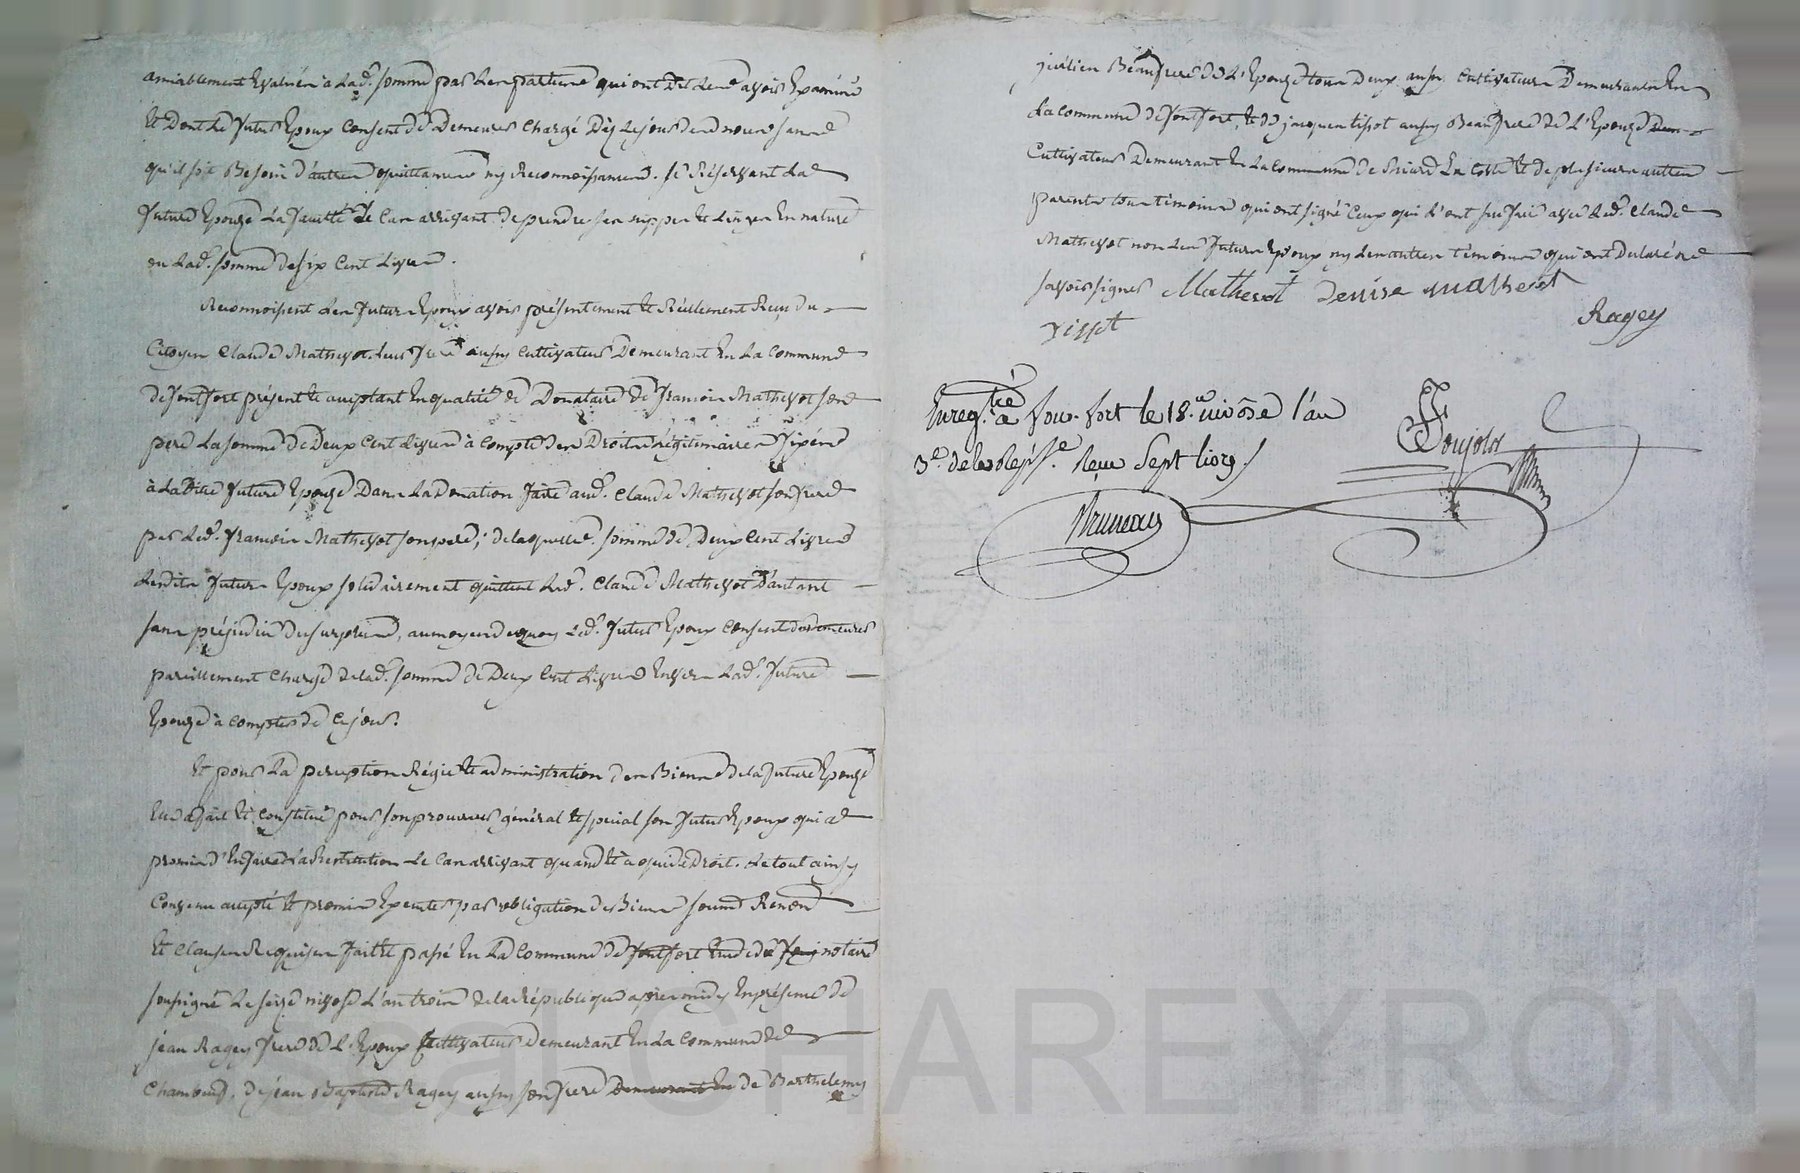 amiablement Evaluée a Lad. somme par Les parties qui ont dit Les avoir Examiné
Et Dont Le futur Epoux Consent de Demeurer Chargé Dès Le jour
qu'il soit Besoin d'autres quittances ny Reconnoissances. se Réservant La
future Epouze La faculté Le Cas arrivant de prendre ses nippes et Linges En nature
ou Lad. somme de six Cent Livres.
Reconnoissent Les futurs Epoux avoir présentement et Réellement Reçu du
Citoyen Claude Mathevot Leur frere aussy Cultivateur Demeurant En La Commune
de fontfort présent et aceptant En qualité de Donataire de françois Mathevot son
pere La somme de Deux Cent Livres à Compte des Droits Légitimaires fixés
à La Ditte future Epouze Dans La Donation faite aud. Claude Mathevot son frere
par Led. françois Mathevot son pere; de laquelle somme de Deux Cent Livres
Lesdits futurs Epoux solidairement quittent Led. Claude Mathevot D'autant
sans préjudice du surplus, au moyen de quoy Led. futur Epoux Consent de demeurer
pareillement Chargé de lad. somme de Deux Cent Livres Envers Lad. future
Epouze à Compter de Ce jour.
Et pour La perception Régie et administration des Biens de la future Epouze
Elle a fait Et Constitué pour son procureur général et spécial son futur Epoux qui a
promis d'En faire La Restitution Le Cas arrivant quand et à qui de Droit. Le tout ainsy
Convenu accepté et promis Executer par obligation de Biens soumis Renon
Et Clauses Requises fait et passé En La Commune de fontfort Etude de notaire
soussigné Le seize nivose L'an trois de la République après midy En présence de
jean Ragey frere de L'Epoux Cultivateur demeurant En La Commune de
Chambeuf, de jean Baptiste Ragey aussy son frere Demeurant En de Barthelemy
Beaufrere de L'Epouze tous Deux aussy Cultivateurs Demeurants En
La Commune de fontfort, et de jacques tissot aussy Beaufrere de L'Epouze Dem
Cultivateur Demeurant En La Commune de et de plusieurs autres
parents tous temoins qui ont signé Ceux qui L'ont su faire avec Led. Claude
Mathevot non Les futurs Epoux ny Les autres témoins qui ont Declaré ne
savoir signer Mathevot Denise Mathevot
Tissot Ragey
Enregtré a fon-fort le 18.e nivôse l'an
3.e de la Rep.e Reçu Sept livres